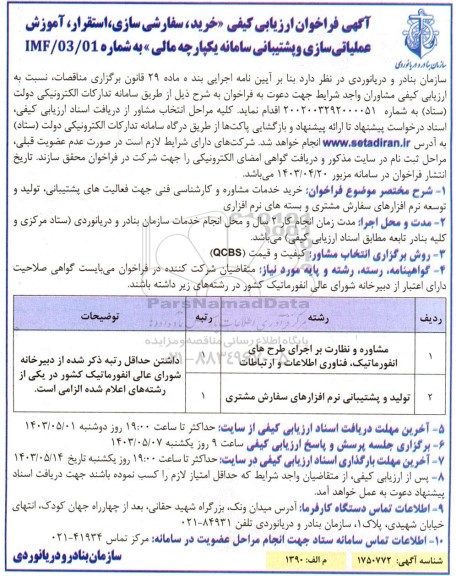 آگهی فراخوان ارزیابی کیفی «خرید، سفارشی سازی، استقرار، آموزش
عملیاتی سازی و پشتیبانی سامانه یکپارچه مالی» به شماره IMF/03/01
سازمان بنادر و دریانوردی
سازمان بنادر و دریانوردی در نظر دارد بنا بر آیین نامه اجرایی بند ه ماده ۲۹ قانون برگزاری مناقصات، نسبت به
ارزیابی کیفی مشاوران واجد شرایط جهت دعوت به فراخوان به شرح ذیل از طریق سامانه تدارکات الکترونیکی دولت
(ستاد) به شماره ۲۰۰۲۰۰۳۲۹۲۰۰۰۰۵۱ اقدام نماید. کلیه مراحل انتخاب مشاور از دریافت اسناد ارزیابی کیفی،
اسناد درخواست پیشنهاد تا ارائه پیشنهاد و بازگشایی پاکت‌ها از طریق درگاه سامانه تدارکات الکترونیکی دولت (ستاد)
به آدرس www.setadiran.ir انجام خواهد شد. شرکت‌های دارای شرایط لازم است در صورت عدم عضویت قبلی،
مراحل ثبت نام در سایت مذکور و دریافت گواهی امضای الکترونیکی را جهت شرکت در فراخوان محقق سازند. تاریخ
انتشار فراخوان در سامانه مزبور ۱۴۰۳/۰۴/۲۰ می‌باشد.
۱- شرح مختصر موضوع فراخوان: خرید خدمات مشاوره و کارشناسی فنی جهت فعالیت های پشتیبانی، تولید و
توسعه نرم افزارهای سفارش مشتری و بسته های نرم افزاری
۲- مدت و محل اجرا: مدت زمان انجام کار ۲ سال و محل انجام خدمات سازمان بنادر و دریانوردی (ستاد مرکزی و
کلیه بنادر تابعه مطابق اسناد ارزیابی کیفی) می‌باشد.
۳- روش برگزاری انتخاب مشاور: کیفیت و قیمت (QCBS)
۴- گواهینامه، رسته، رشته و پایه مورد نیاز: متقاضیان شرکت کننده در فراخوان می‌بایست گواهی صلاحیت
دارای اعتبار از دبیرخانه شورای عالی انفورماتیک کشور در رشته‌های زیر داشته باشند.
ParsNamadData
پایگاه اطلاع رسانی مناقصه و مزایده
ردیف رشته رتبه توضیحات
۱ مشاوره و نظارت بر اجرای طرح های انفورماتیک، فناوری اطلاعات و ارتباطات ۱
۲ تولید و پشتیبانی نرم افزارهای سفارش مشتری ۱
داشتن حداقل رتبه ذکر شده از دبیرخانه
شورای عالی انفورماتیک کشور در یکی از
رشته‌های اعلام شده الزامی است.
۵- آخرین مهلت دریافت اسناد ارزیابی کیفی از سایت: حداکثر تا ساعت ۱۹:۰۰ روز دوشنبه ۱۴۰۳/۰۵/۰۱
۶- برگزاری جلسه پرسش و پاسخ ارزیابی کیفی ساعت ۹ روز یکشنبه ۱۴۰۳/۰۵/۰۷
۷- آخرین مهلت بارگذاری اسناد ارزیابی کیفی در سایت: حداکثر تا ساعت ۱۹:۰۰ روز یکشنبه تاریخ ۱۴۰۳/۰۵/۱۴
۸- پس از ارزیابی کیفی، از متقاضیان واجد شرایط که حداقل امتیاز لازم را کسب نموده باشند جهت دریافت اسناد
پیشنهاد دعوت به عمل خواهد آمد.
۹- اطلاعات تماس دستگاه کارفرما: آدرس میدان ونک، بزرگراه شهید حقانی، بعد از چهارراه جهان کودک، انتهای
خیابان شهیدی، پلاک۱، سازمان بنادر و دریانوردی تلفن ۸۴۹۳۱-۰۲۱
۱۰- اطلاعات تماس سامانه ستاد جهت انجام مراحل عضویت در سامانه: مرکز تماس ۴۱۹۳۴-۰۲۱
شناسه آگهی: ۱۷۵۰۷۷۲
م الف: ۱۳۹۰
سازمان بنادر و دریانوردی